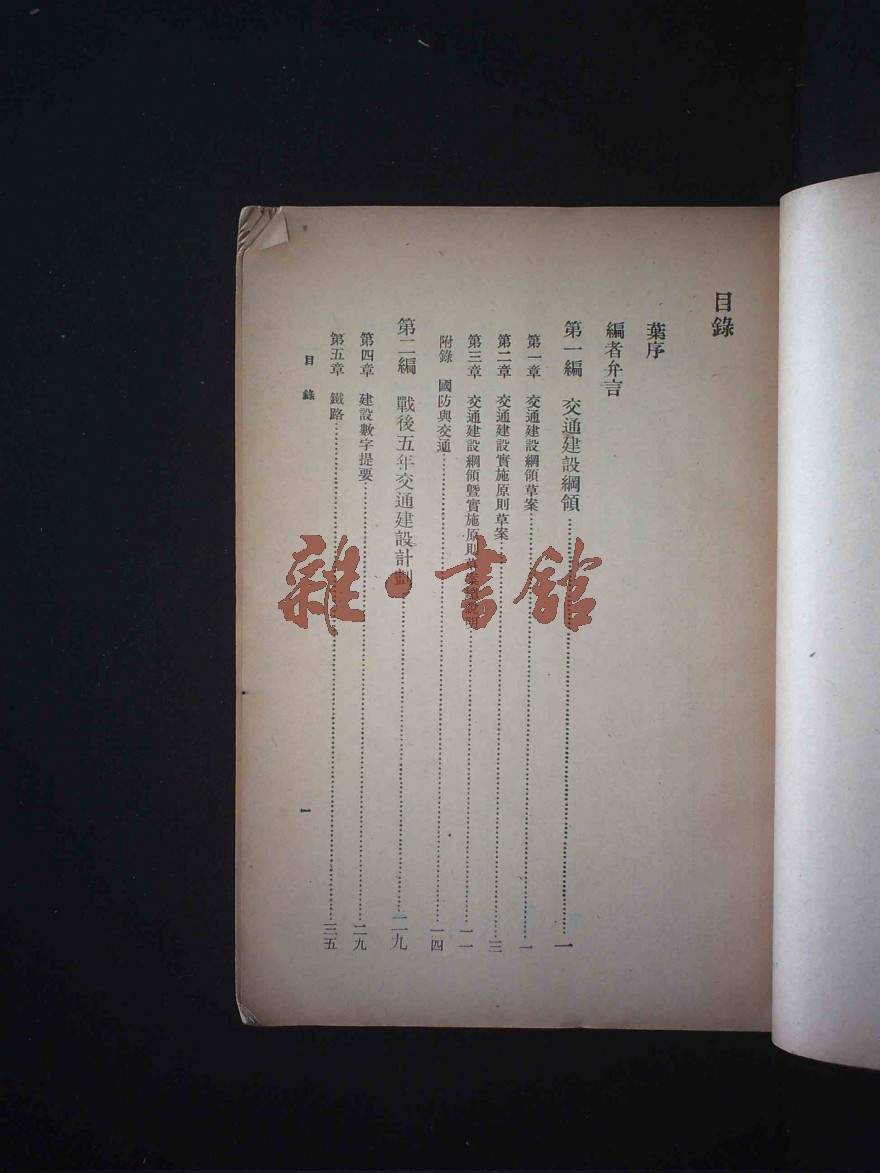 目錄
葉序
編者弁言
第一編 交通建設綱領……一
第一章 交通建設綱領草案……一
第二章 交通建設實施原則草案……三
第三章 交通建設綱領暨實施原則草案說明……一一
附錄 國防與交通……一四
第二編 戰後五年交通建設計劃……二九
第四章 建設數字提要……二九
第五章 鐵路……三五
目錄
一
雜·書館